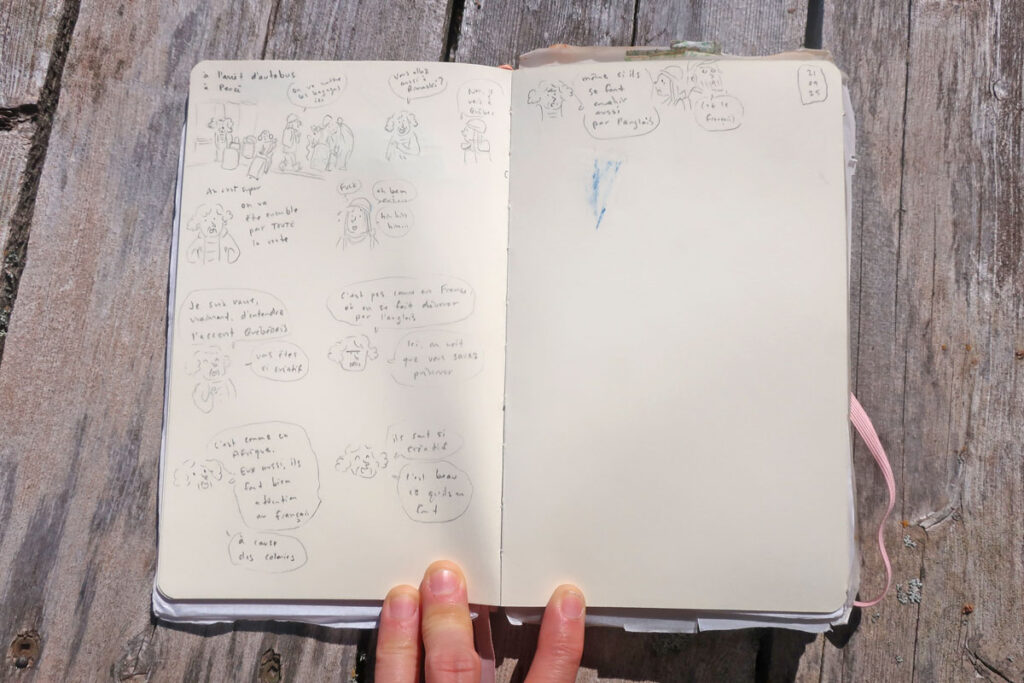 à l'arrêt d'autobus
à Percé
on va mettre
les bagages
ici
vous allez
aussi à
Rimouski?
non je
vais à
Québec
Ah c'est super
on va
être ensemble
par TOUTE
la route
Fuck
eh ben
hin hin
Je suis venue,
vraiment, d'entendre
l'accent Québécois
vous êtes
si créatif
c'est pas comme en France
où on se fait dévorer
par l'anglais
Ici, on voit
que vous savez
préserver
c'est comme en
Afrique.
Eux aussi, ils
font bien
attention
au français
à cause
des colonies
ils sont si
créatif
c'est beau
ce qu'ils en
font
même si ils
se font
envahir
aussi
par l'anglais
français
21
09
25